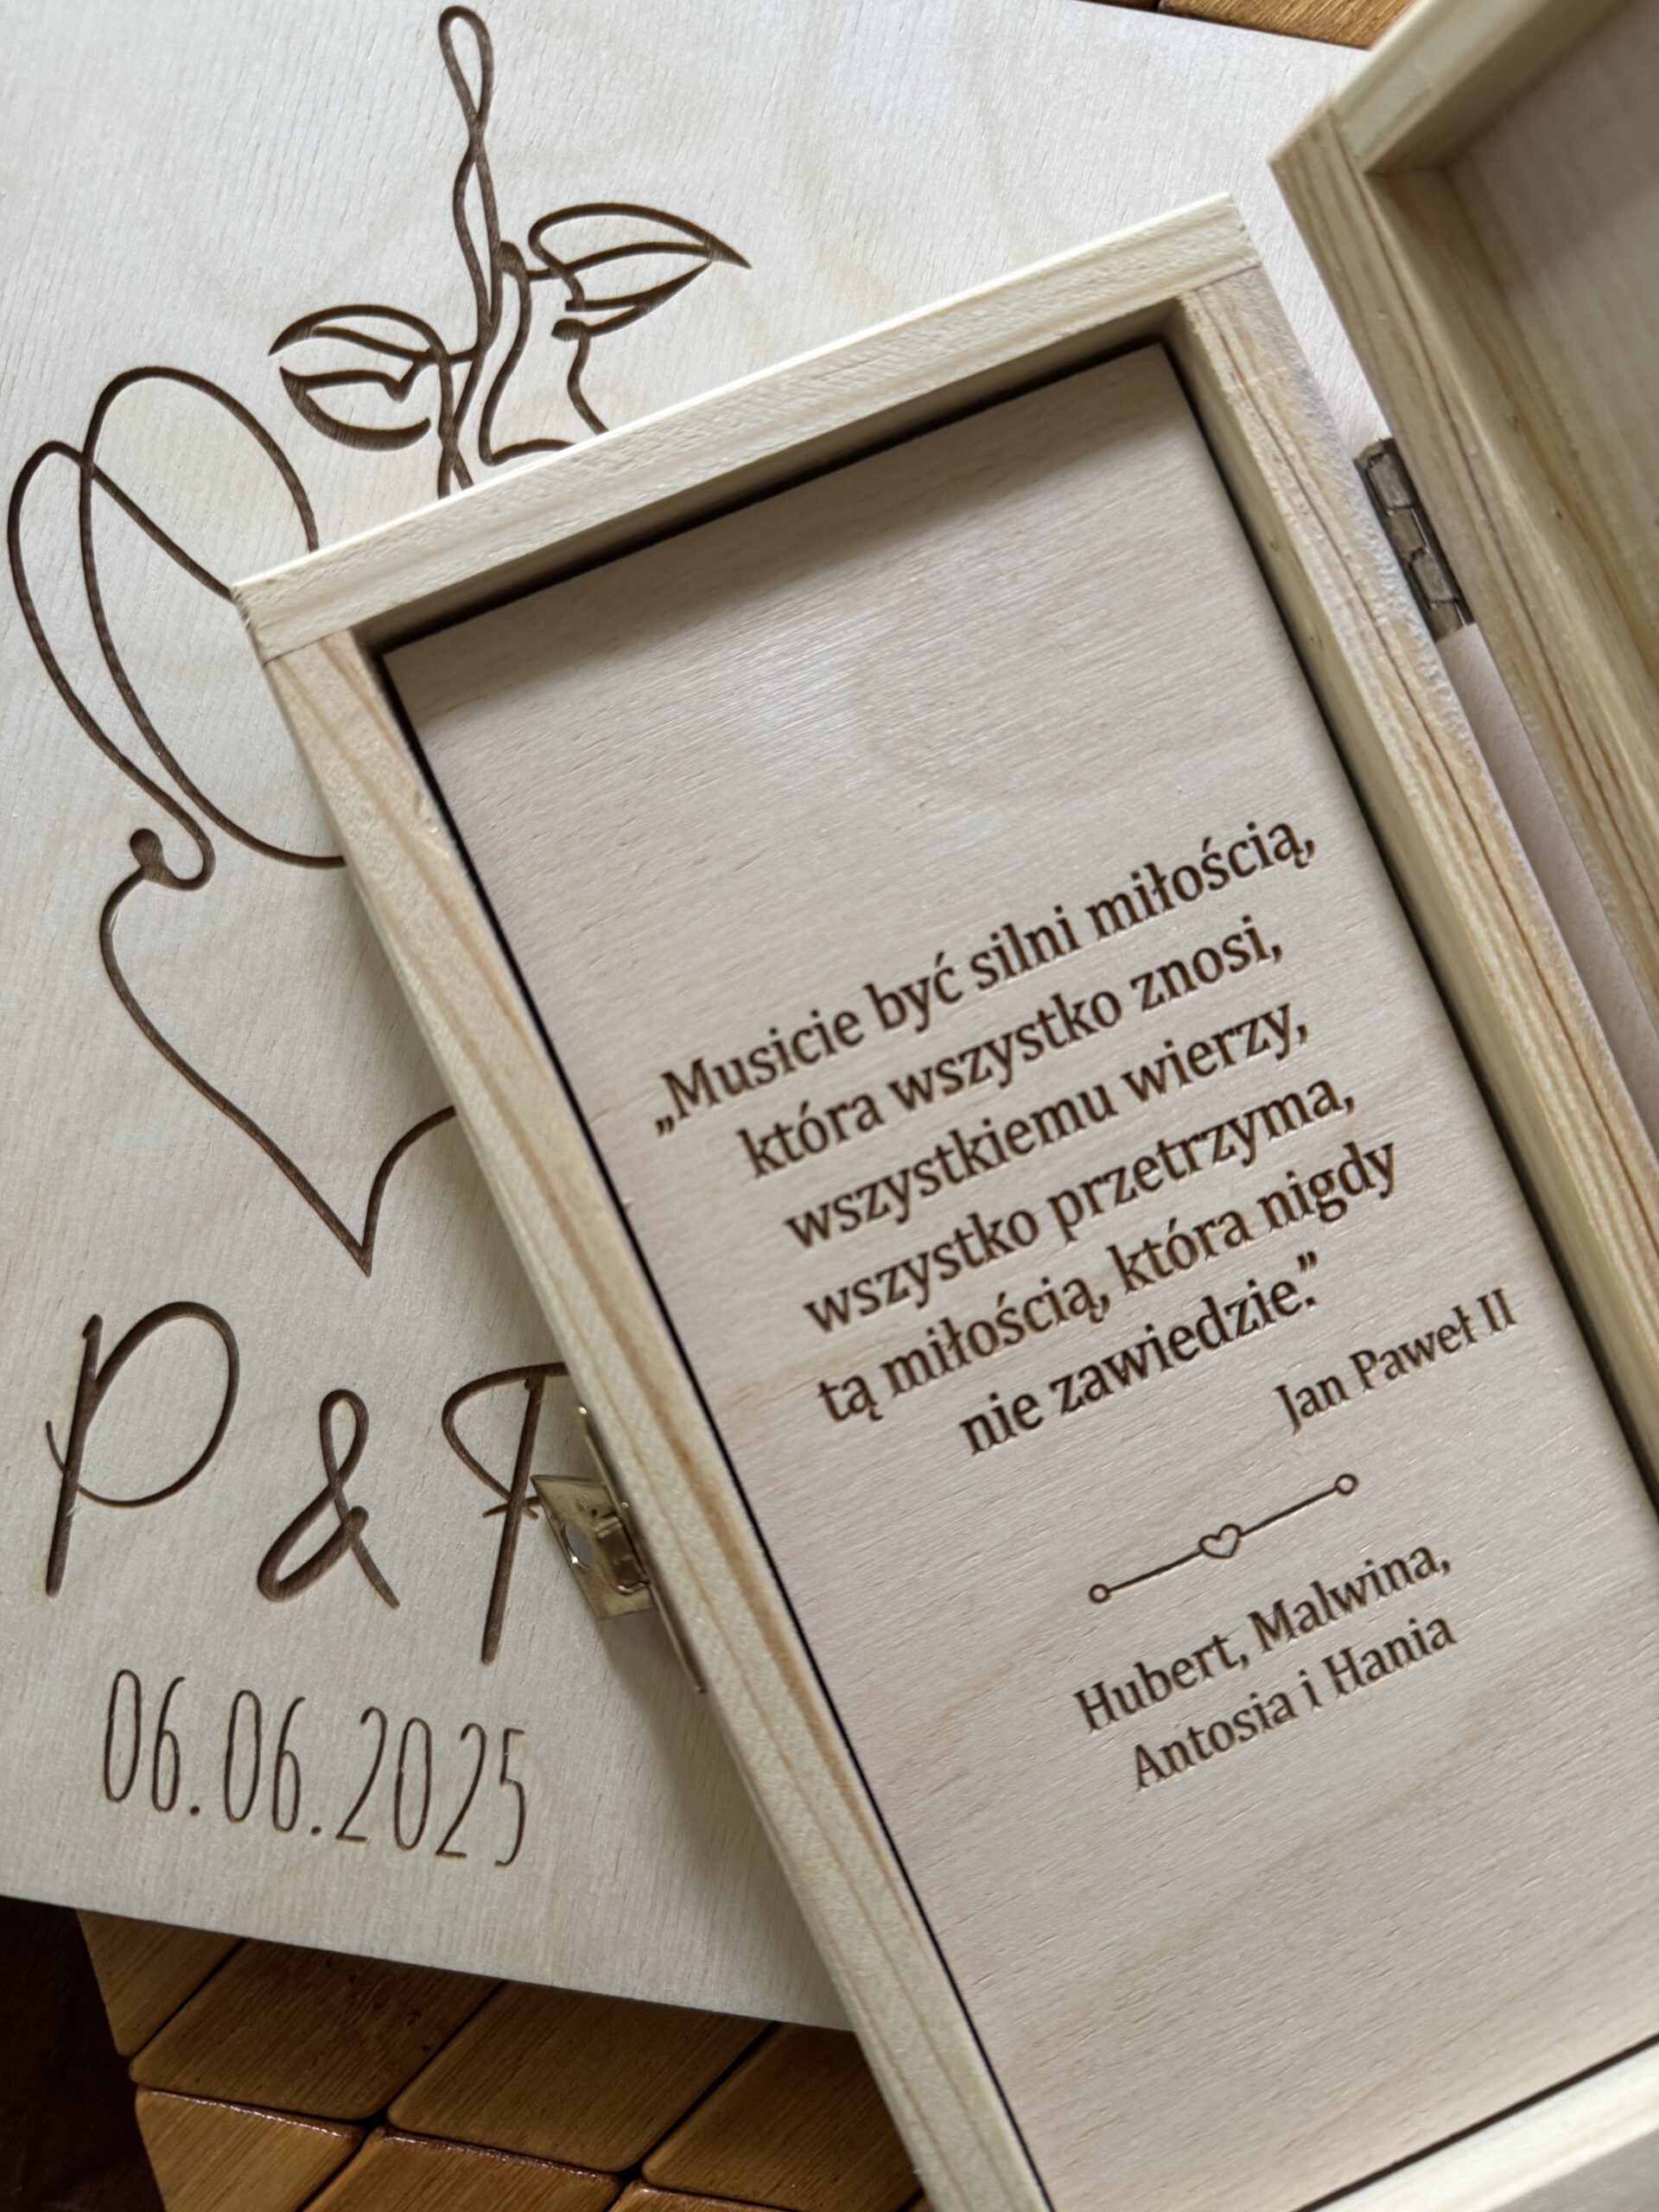 P & F
06.06.2025
„Musicie być silni miłością,
która wszystko znosi,
wszystkiemu wierzy,
wszystko przetrzyma,
tą miłością, która nigdy
nie zawiedzie.”
Jan Paweł II
Hubert, Malwina,
Antosia i Hania